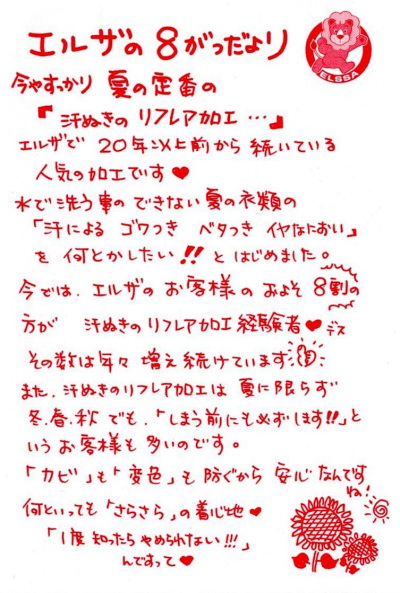 エルザの 8がつだより
ELSSA
今やすっかり 夏の定番の
『汗ぬきの リフレア加工…』
エルザで 20年以上前から 続いている
人気の加工です♥
水で洗う事の できない 夏の衣類の
「汗による ゴワつき ベタつき イヤなにおい」
を 何とかしたい!! と はじめました。
今では、エルザの お客様 の およそ 8割の
方が 汗ぬきのリフレア加工 経験者♥デス
その数は年々 増え続けています
また、汗ぬきのリフレア加工は 夏に限らず
冬、春、秋 でも、「しまう前にも必ずします!!」と
いうお客様も 多いのです。
「カビ」も「変色」も 防ぐから 安心 なんです
ね!
何といっても「さらさら」の着心地♥
「1度 知ったら やめられない!!!」
んですって♥